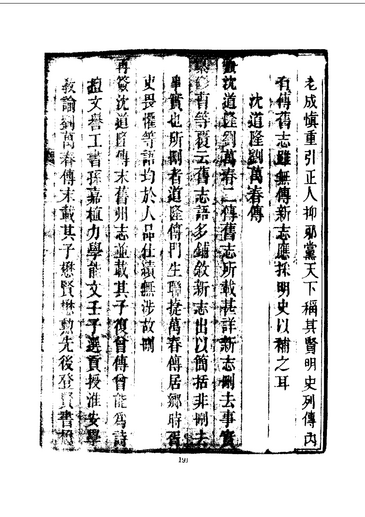 老成慎重引正人抑邪黨天下稱其賢明史列傳內
有傳舊志雖無傳新志應採明史以補之耳
沈道隆劉萬春傳
沈道隆劉萬春二傳舊志所載甚詳新志刪去事實
等覆云舊志語多鋪敘新志出以簡括非刪去
事實也所刪者道隆傳門生聯捷萬春傳居鄉時
吏畏懼等語均於人品仕績無涉故刪
再簽沈道隆傳末舊州志並載其子復曾傳曾能爲詩
文譽工書孫嘉植力學能文壬子選貢授淮安學
教諭劉萬春傳末載其子懋賢懋勳先後登賢書
191